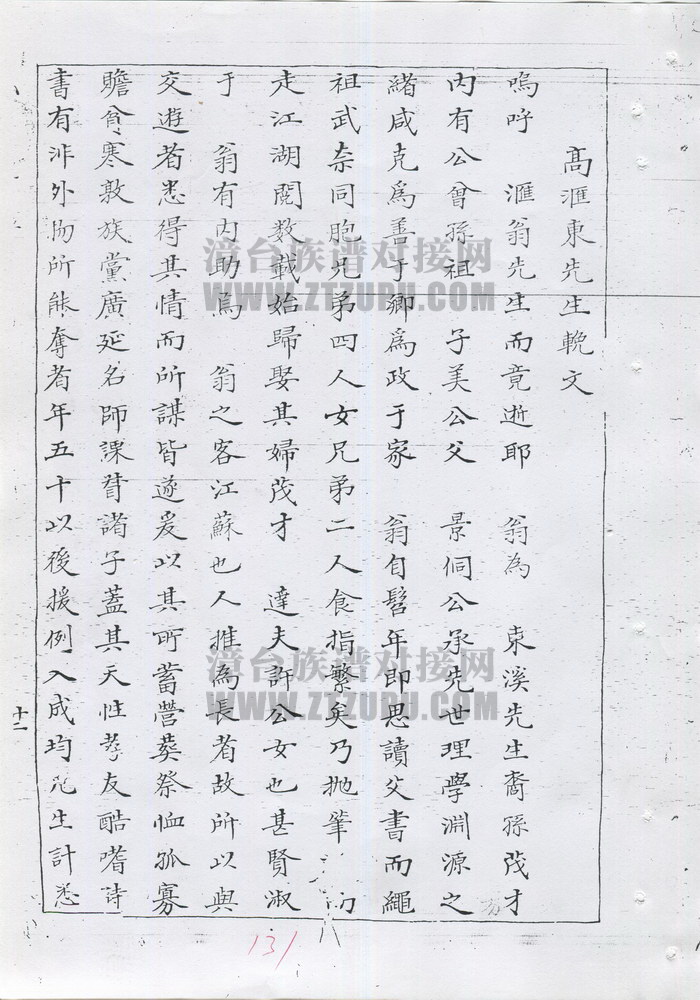 高滙東先生輓文
嗚呼　滙翁先生而竟逝耶　翁為　東溪先生裔孫茂才
內有公曾孫祖　子美公父　景侗公承先世理學淵源之
緒咸克為善于鄉為政于家　翁自髫年即思讀父書而繩
祖武奈同胞兄弟四人女兄弟二人食指繁矣乃拋筆
走江湖閱数載始歸娶其婦茂才　達夫許公女也甚賢淑
于　翁有內助焉　翁之客江蘇也人推為長者故所以與
交遊者悉得其情而所謀皆遂爰以其所蓄營葬祭恤孤寡
贍貧寒敦族黨廣延名師課督諸子蓋其天性孝友酷嗜詩
書有非外物所能奪者年五十以後援例入成均凡生計悉
十二
131
漳台族谱对接网
WWW.ZTZUPU.COM
漳台族谱对接网
WWW.ZTZUPU.COM